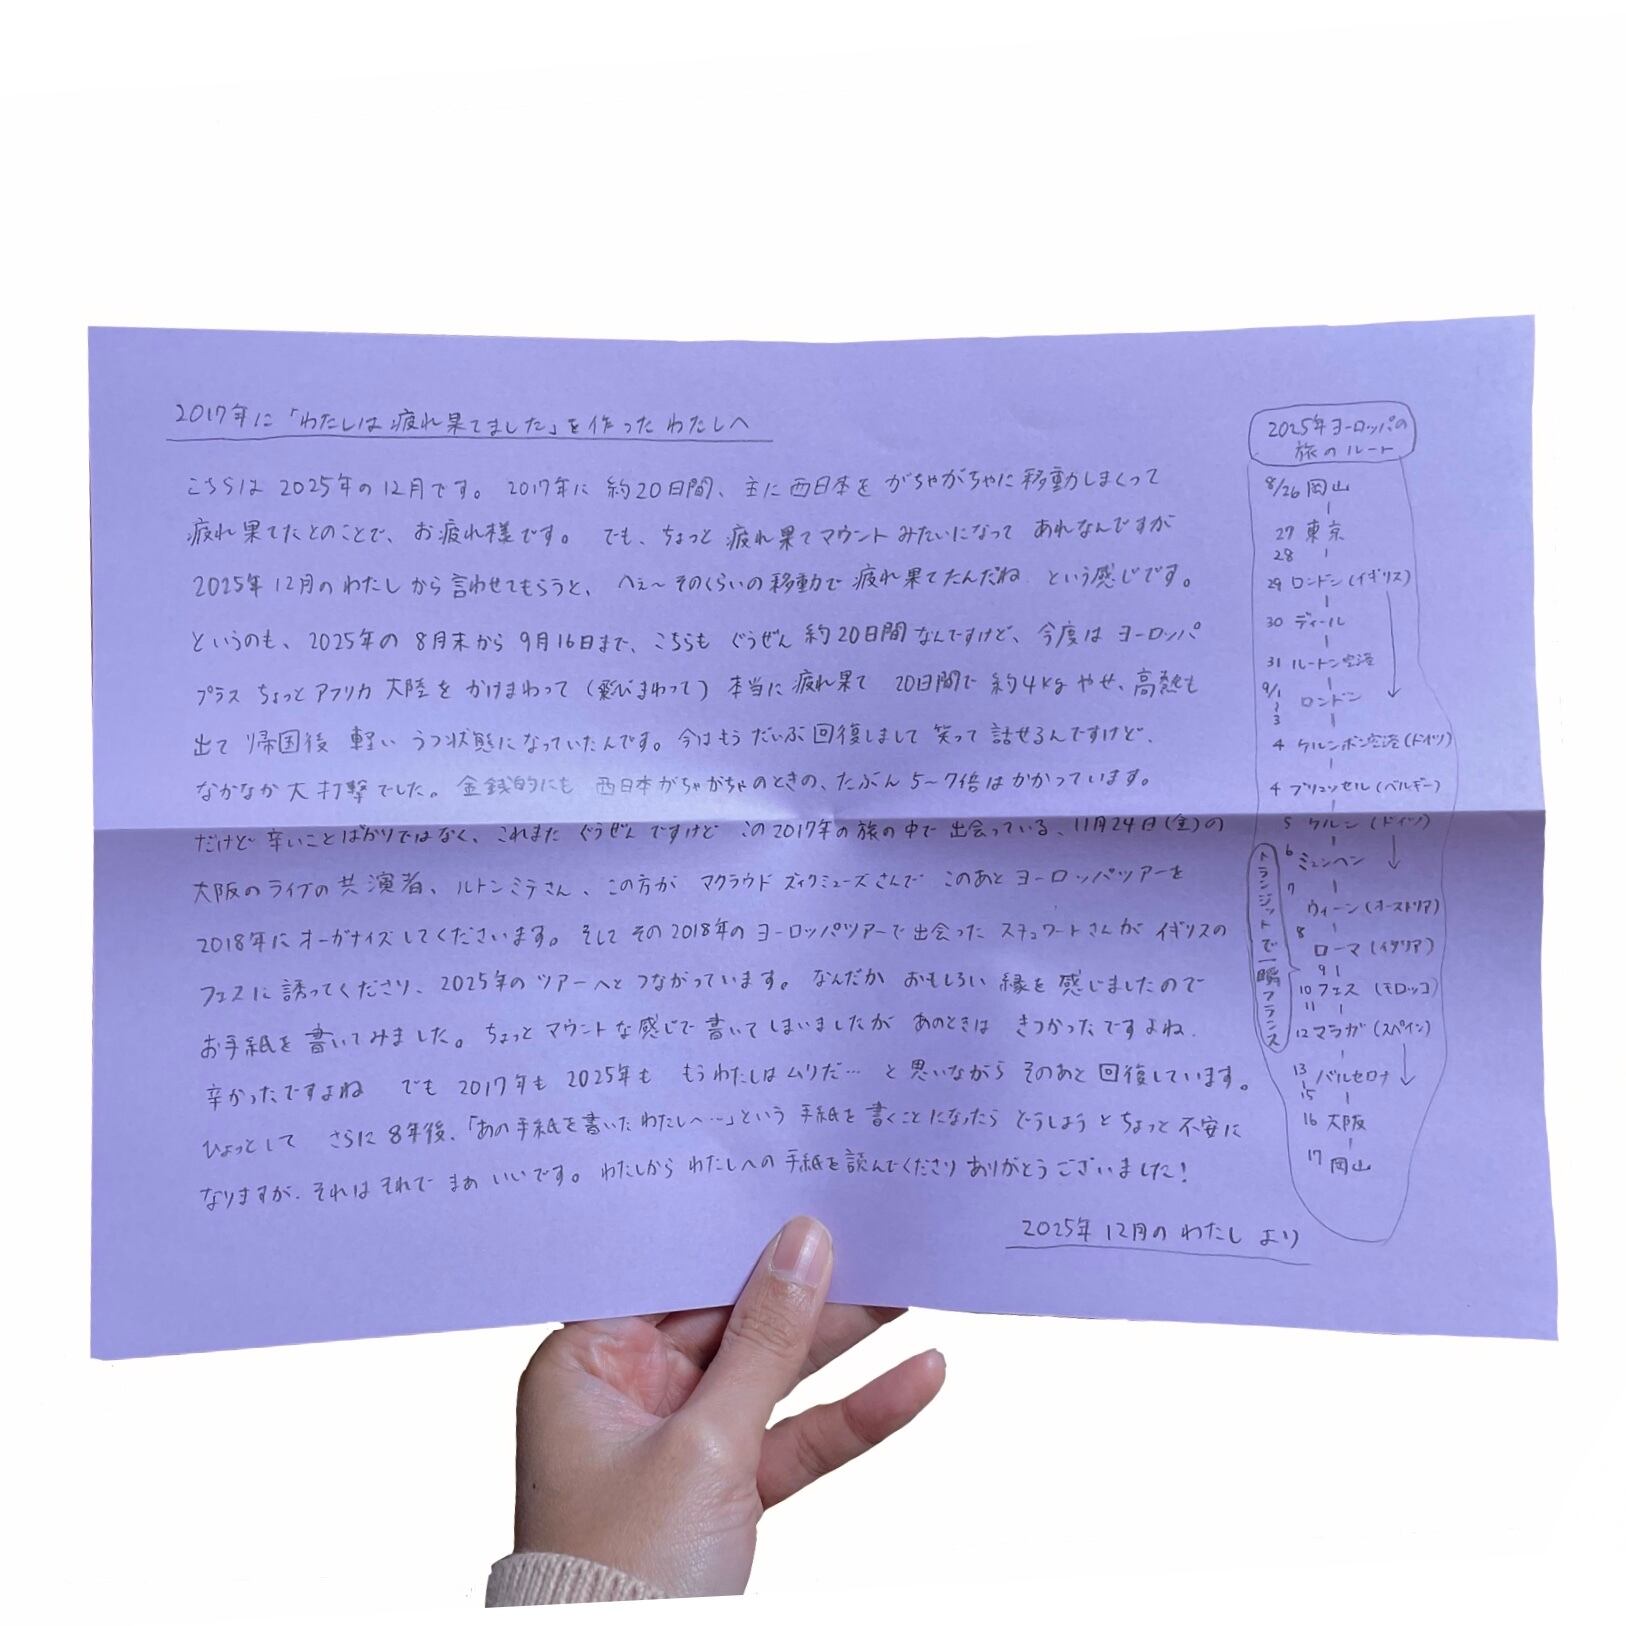 2017年に「わたしは疲れ果てました」を作ったわたしへ
こちらは2025年の12月です。2017年に約20日間、主に西日本をがちゃがちゃに移動しまくって
疲れ果てたとのことで、お疲れ様です。でも、ちょっと疲れ果てマウントみたいになってあれなんですが
2025年12月のわたしから言わせてもらうと、へぇ〜そのくらいの移動で疲れ果てたんだねという感じです。
というのも、2025年の8月末から9月16日まで、こちらもぐうぜん約20日間なんですけど、今度はヨーロッパ
プラスちょっとアフリカ大陸をかけまわって(飛びまわって)本当に疲れ果て20日間で約4kgやせ、高熱も
出て帰国後軽いうつ状態になっていたんです。今はもうだいぶ回復しまして笑って話せるんですけど、
なかなか大打撃でした。金銭的にも西日本がちゃがちゃのときの、たぶん5〜7倍はかかっています。
だけど辛いことばかりではなく、これまたぐうぜんですけどこの2017年の旅の中で出会っている、11月24日(金)の
大阪のライブの共演者、ルトンミテさん、この方がマクラウドズィクミューズさんでこのあとヨーロッパツアーを
2018年にオーガナイズしてくださいます。そしてその2018年のヨーロッパツアーで出会ったスチュワートさんがイギリスの
フェスに誘ってくださり、2025年のツアーへとつながっています。なんだかおもしろい縁を感じましたので
お手紙を書いてみました。ちょっとマウントな感じで書いてしまいましたがあのときはきつかったですよね.
辛かったですよねでも2017年も2025年ももうわたしはムリだ…と思いながらそのあと回復しています。
ひょっとしてさらに8年後、「あの手紙を書いたわたしへ…」という手紙を書くことになったらどうしようとちょっと不安に
なりますが、それはそれでまあいいです。わたしからわたしへの手紙を読んでくださりありがとうございました!
2025年12月のわたしより
2025年ヨーロッパの
旅のルート
8/26 岡山
27 東京
28
29 ロンドン(イギリス)
30 ディール
31 ルートン空港
9/1
3 ロンドン
4 ケルンボン空港(ドイツ)
4 ブリュッセル(ベルギー)
5 ケルン(ドイツ)
6 ミュンヘン
7 ウィーン(オーストリア)
8 ローマ(イタリア)
9
10 フェス(モロッコ)
11
12 マラガ(スペイン)
13
15 バルセロナ
16 大阪
17 岡山
トランジットで一瞬フランス